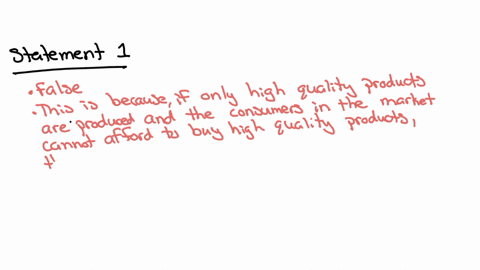 Statement 1
• False
• This is because, if only high quality products
are produced and the consumers in the market
cannot afford to buy high quality products,